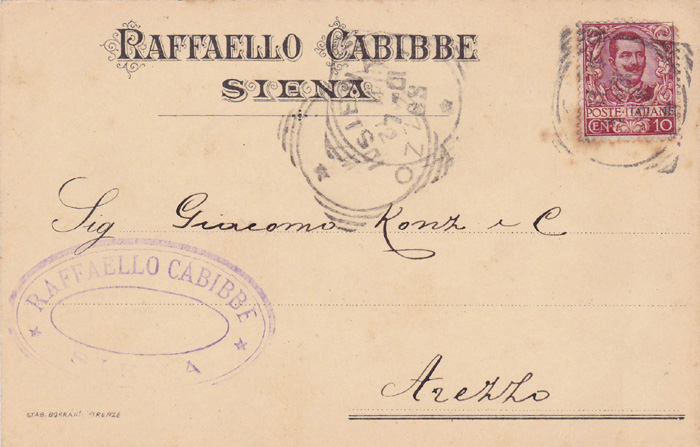 RAFFAELLO CABIBBE
SIENA
POSTE ITALIANE
CEN 10
Sig Giacomo Konz e C
RAFFAELLO CABIBBE
SIENA
Arezzo
STAB. BORRANI FIRENZE